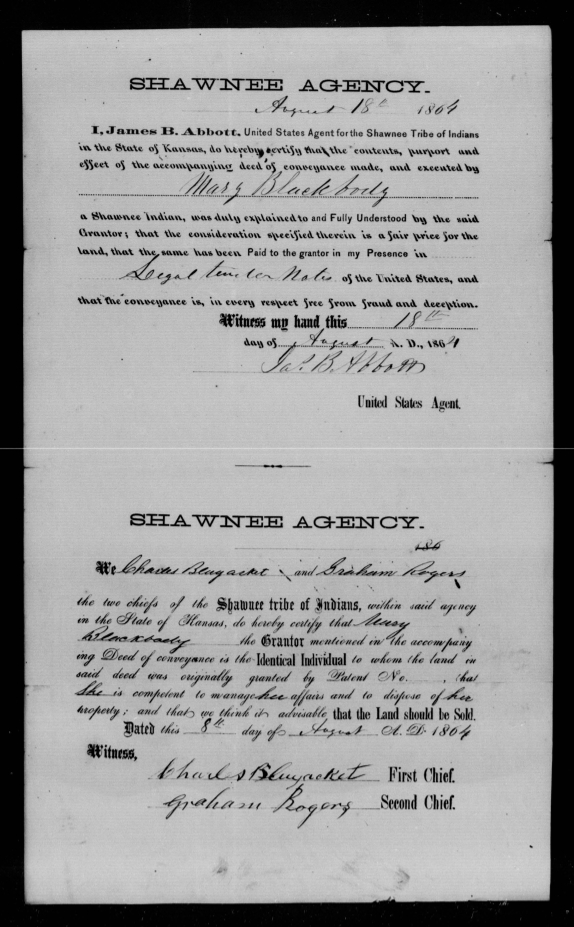 SHAWNEE AGENCY.
August 18th 1864
I, James B. Abbott, United States Agent for the Shawnee Tribe of Indians
in the State of Kansas, do hereby certify that the contents, purport and
effect of the accompanying deed of conveyance made, and executed by
Mary Blackbody
a Shawnee Indian, was duly explained to and Fully Understood by the said
Grantor; that the consideration specified therein is a fair price for the
land, that the same has been Paid to the grantor in my Presence in
Legal tender Notes of the United States, and
that the conveyance is, in every respect free from fraud and deception.
Witness my hand this 18th
day of August A. D., 1864
Jas. B. Abbott
United States Agent.
SHAWNEE AGENCY.
186
We Charles Bluejacket and Graham Rogers
the two chiefs of the Shawnee tribe of Indians, within said agency
in the State of Kansas, do hereby certify that Mary
Blackbody the Grantor mentioned in the accompany
ing Deed of conveyance is the Identical Individual to whom the land in
said deed was originally granted by Patent No. , tha
She is competent to manage her affairs and to dispose of her
property; and that we think it advisable that the Land should be Sold.
Dated this 8th day of August A. D. 1864
Witness,
Charles Bluejacket First Chief.
Graham Rogers Second Chief.